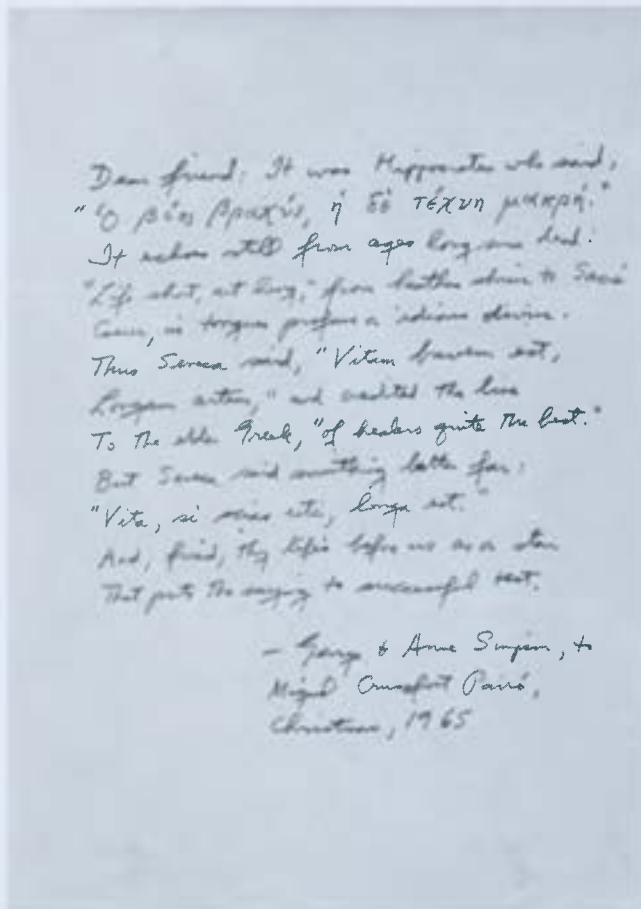 Dear friend: It was Hippocrates who said,
"Ὁ βίος βραχύς, ἡ δὲ τέχνη μακρή."
It echoes still from ages long since dead:
"Life short, art long," from heathen shrine to Sacré
Coeur, in tongues profane or idiom divine.
Thus Seneca said, "Vitam brevem est,
Longam artem," and credited the line
To the older Greek, "of healers quite the best."
But Seneca said something better far:
"Vita, si scias uti, longa est."
And, friend, thy life's before us as a star
That puts the saying to successful test.
— George & Anne Simpson, to
Miguel Crusafont Pairó,
Christmas, 1965